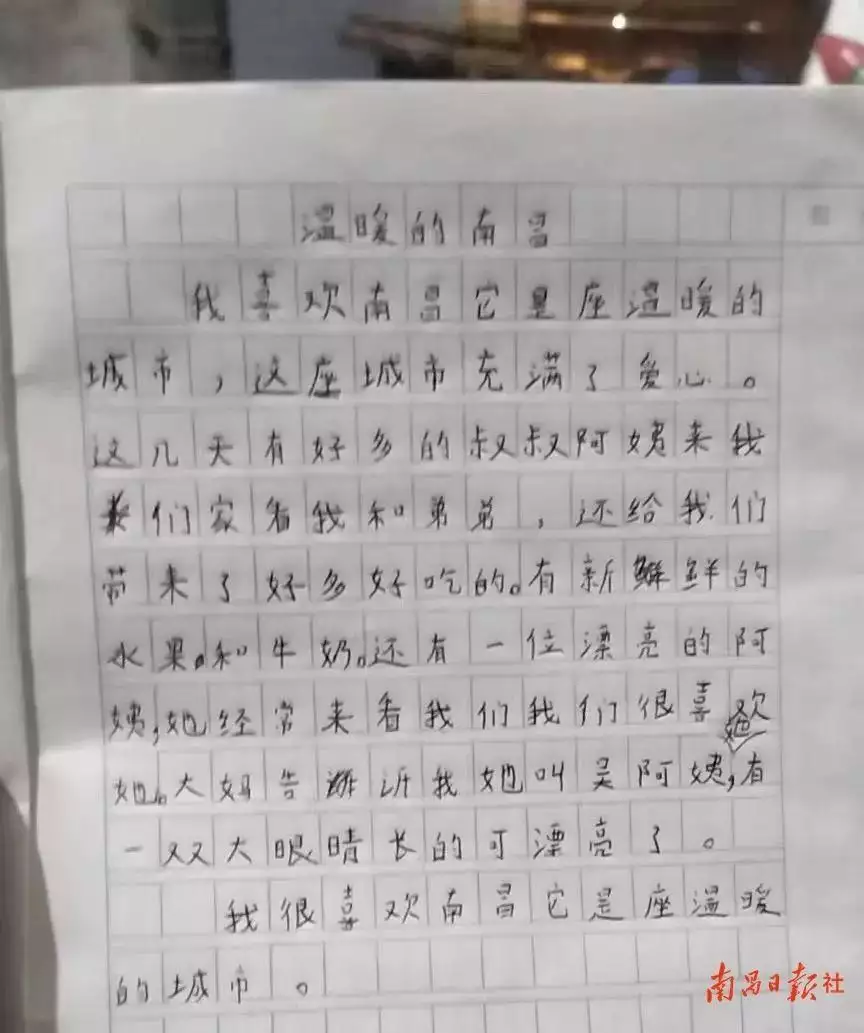 温暖的南昌
我喜欢南昌它是座温暖的
城市，这座城市充满了爱心。
这几天有好多的叔叔阿姨来我
们家看我和弟弟，还给我们
带来了好多好吃的。有新鲜的
水果。和牛奶。还有一位漂亮的阿
姨，她经常来看我们我们很喜欢
她。大妈告诉我她叫吴阿姨，她有
一双大眼睛长的可漂亮了。
我很喜欢南昌它是座温暖
的城市。
南昌日报社